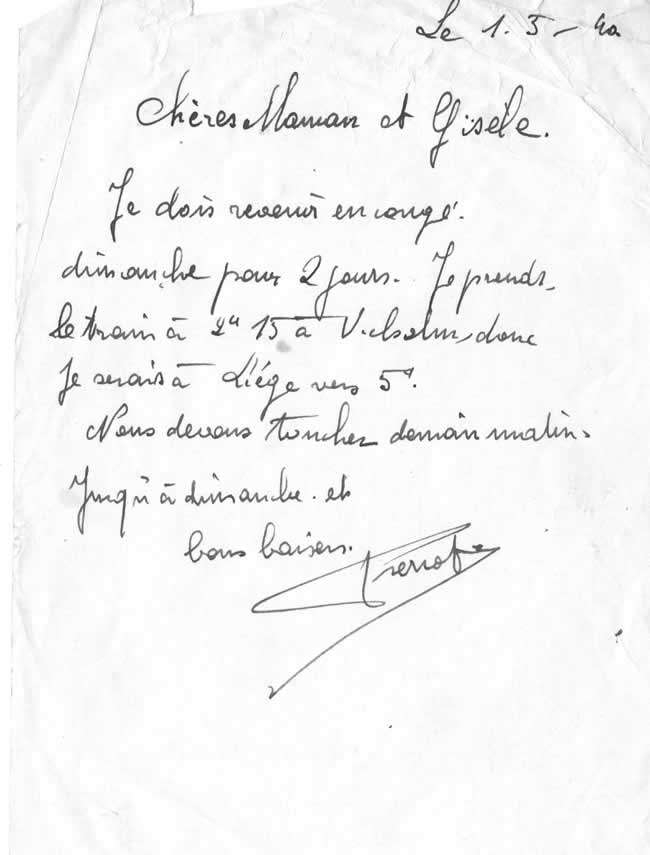 Le 1. 5 - 40
Chères Maman et Gisèle.
Je dois revenir en congé.
dimanche pour 2 jours. Je prends
le train à 2h 15 à Vielsalm, donc
je serais à Liége vers 5h.
Nous devons toucher demain matin.
Jusqu'à dimanche. et
bons baisers.
Pierrot